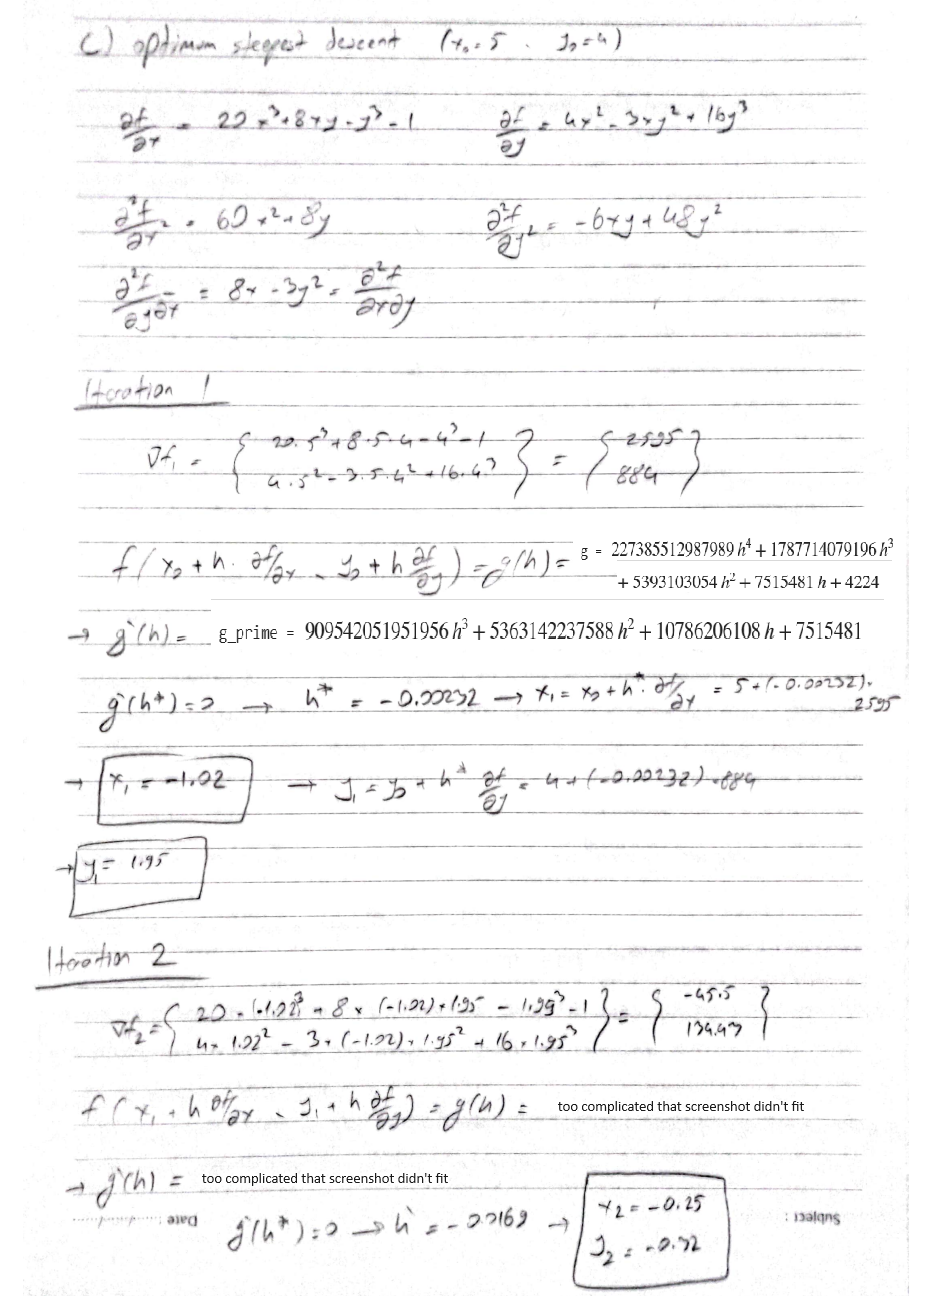 C) optimum steepest descent (x₀ = 5 , y₀ = 4)
∂f/∂x = 20x³ + 8xy - y³ - 1    ∂f/∂y = 4x² - 3xy² + 16y³
∂²f/∂x² = 60x² + 8y    ∂²f/∂y² = -6xy + 48y²
∂²f/∂y∂x = 8x - 3y² = ∂²f/∂x∂y
Iteration 1
∇f₁ = { 20·5³ + 8·5·4 - 4³ - 1
4·5² - 3·5·4² + 16·4³ } = { 2595
884 }
f(x₀ + h·∂f/∂x , y₀ + h ∂f/∂y) = g(h) = g = 227385512987989 h⁴ + 1787714079196 h³
+ 5393103054 h² + 7515481 h + 4224
→ g'(h) = g_prime = 909542051951956 h³ + 5363142237588 h² + 10786206108 h + 7515481
g'(h*) = 0 → h* = -0.00232 → x₁ = x₀ + h*·∂f/∂x = 5 + (-0.00232)·
2595
→ x₁ = -1.02 → y₁ = y₀ + h* ∂f/∂y = 4 + (-0.00232)·884
→ y₁ = 1.95
Iteration 2
∇f₂ = { 20·(-1.02)³ + 8×(-1.02)×1.95 - 1.95³ - 1
4×1.02² - 3×(-1.02)×1.95² + 16×1.95³ } = { -45.5
134.43 }
f(x₁ + h ∂f/∂x , y₁ + h ∂f/∂y) = g(h) = too complicated that screenshot didn't fit
→ g'(h) = too complicated that screenshot didn't fit
g'(h*) = 0 → h* = -0.0169 → x₂ = -0.25
y₂ = -0.32
Subject :
Date :